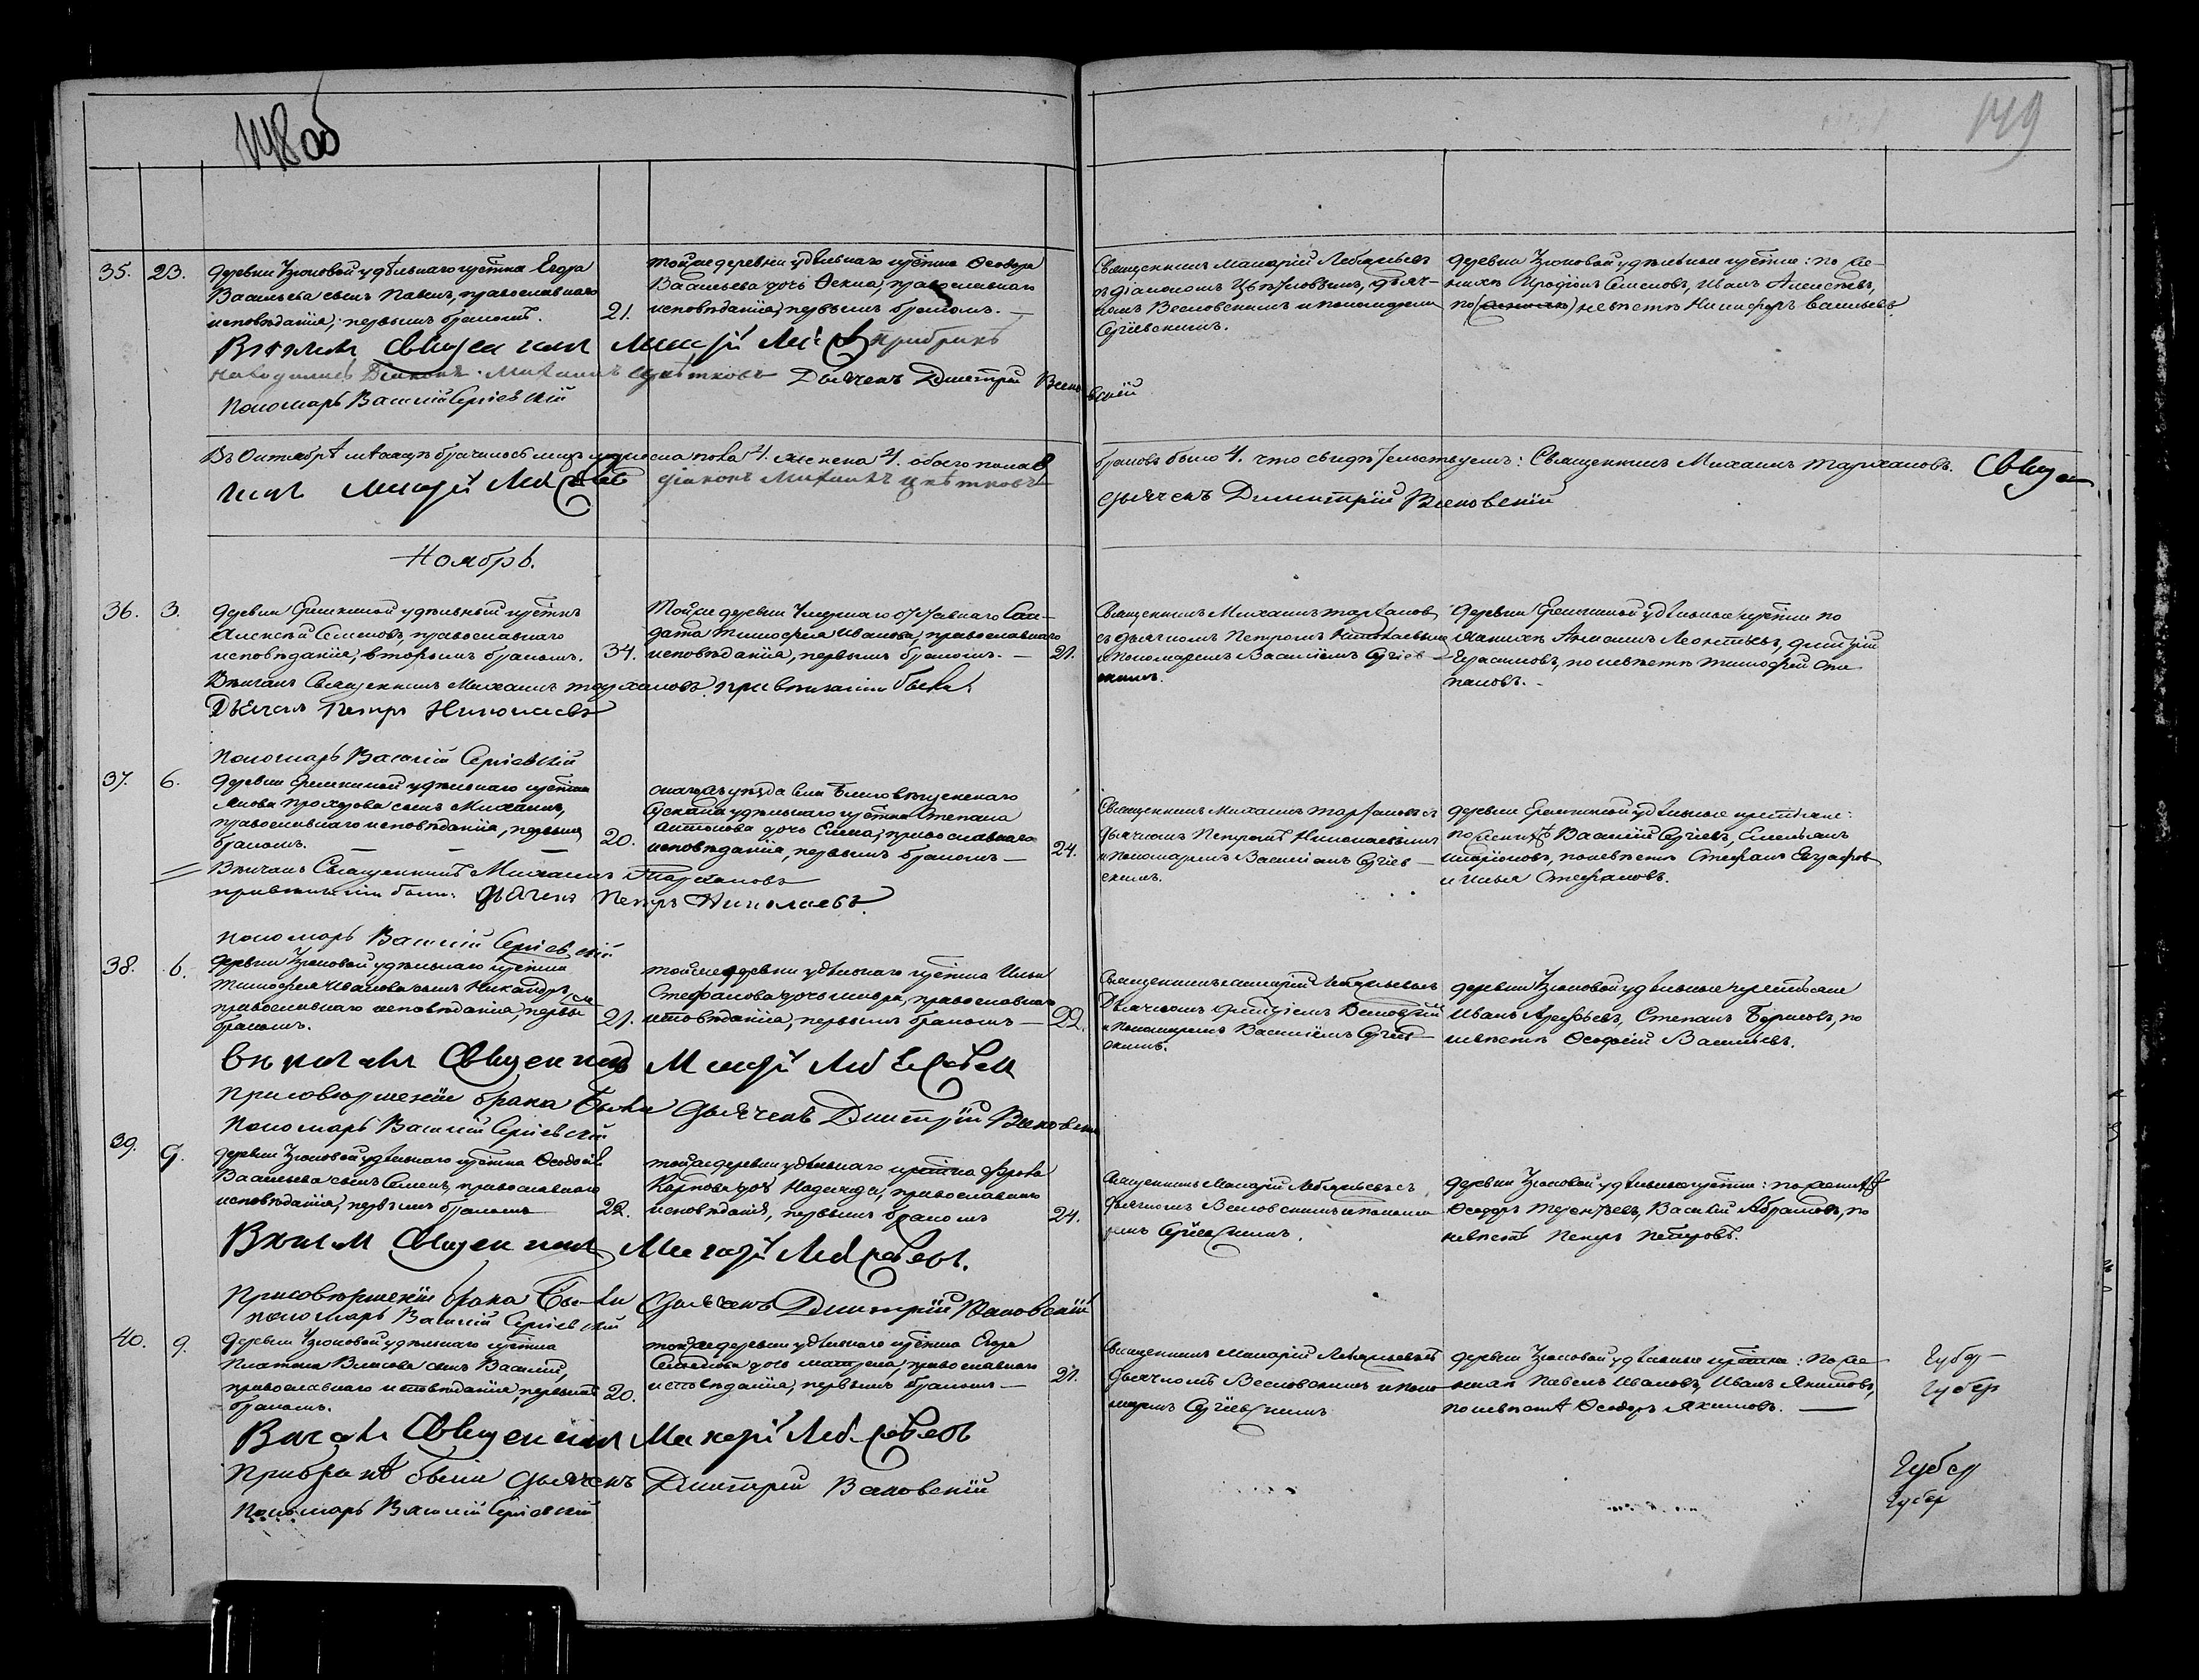 148 об
149
35. 23. деревни Узюковой удѣльнаго крѣстна Егора
Васильева сынъ Павелъ, православнаго
исповѣданія, первымъ бракомъ. 21.
тойже деревни удѣльнаго крѣстна Ѳеодора
Васильева дочь Ѳекла, православнаго
исповѣданія, первымъ бракомъ. —
Священникъ Макарій
съ діакономъ Цвѣтковымъ, дьяч-
комъ Веселовскимъ и пономаремъ
Сергіевскимъ.
деревни Узюковой удѣльные крѣстне: по же-
нихѣ Иродіонъ Семеновъ, Иванъ Алексѣевъ,
по невѣстѣ Никифоръ Васильевъ
Священникъ Макарій при бракѣ
находились Діаконъ Михаилъ Цвѣтковъ Дьячекъ Дмитрій
Пономарь Василій Сергіевскій
Въ Октябрѣ мѣсяцѣ мужеска пола 4. женска 4. обоего пола 8
браковъ было 4. что свидѣтельствуемъ: Священникъ Михаилъ Тарханов. Священ
никъ Макарій діаконъ Михаилъ Цвѣтковъ
дьячекъ Димитрій
Ноябрь.
36. 3. деревни Еремкиной удѣльный крѣстнъ
Алексѣй Семеновъ, православнаго
исповѣданія, вторымъ бракомъ. 34.
Тойже деревни Сол-
дата Тимофея Иванова, православнаго
исповѣданія, первымъ бракомъ. — 21.
Священникъ Михаилъ Тарханов
съ дьячкомъ Петромъ Николаевымъ
и Пономаремъ Василіемъ Сергіев-
скимъ.
деревни Еремкиной удѣльные крѣстне по
женихѣ Леонтьевъ, Дмитрій
Герасимовъ, по невѣстѣ Тимофей Сте-
пановъ. -
Вѣнчалъ Священникъ Михаилъ Тархановъ. при вѣнчаніи были
Дьячекъ Петръ Николаевъ
Пономарь Василій Сергіевскій
37. 6. деревни Еремкиной удѣльнаго крѣстна
Якова Прохорова сынъ Михаилъ,
православнаго исповѣданія, первымъ
бракомъ. — — — 20.
уѣзда
удѣльнаго крѣстна Степана
Антонова дочь Елена, православнаго
исповѣданія, первымъ бракомъ — 24.
Священникъ Михаилъ Тархановъ съ
дьячкомъ Петромъ Николаевымъ
и пономаремъ Василіемъ Сергіев-
скимъ.
деревни Еремкиной удѣльные крестьяне:
по женихѣ Василій Сергѣевъ, Емельянъ
Иларіоновъ, по невѣстѣ Стефанъ Евграфовъ
и Илья Стефановъ.
Вѣнчалъ Священникъ Михаилъ Тархановъ
при вѣнчаніи были: Дьячекъ Петръ Николаевъ.
пономарь Василій Сергіевскій
38. 6. деревни Узюковой удѣльнаго крѣстна
Тимофея Иванова сынъ Никандръ,
православнаго исповѣданія, первымъ
бракомъ. 21.
тойже деревни удѣльнаго крѣстна Ильи
Стефанова дочь православнаго
исповѣданія, первымъ бракомъ — 22.
Священникъ Макарій съ
Дьячкомъ Дмитріемъ
и Пономаремъ Василіемъ Сергіев-
скимъ.
деревни Узюковой удѣльные крестьяне
Иванъ Степанъ Борисовъ, по
невѣстѣ Васильевъ.
Вѣнчалъ Священникъ Макарій
При совершеніи брака были Дьячекъ Дмитрій
Пономарь Василій Сергіевскій
39. 9. деревни Узюковой удѣльнаго крѣстна
Васильева сынъ Семенъ, православнаго
исповѣданія, первымъ бракомъ 22.
тойже деревни удѣльнаго крѣстна Фрола
Карпова дочь Надежда, православнаго
исповѣданія, первымъ бракомъ 24.
Священникъ Макарій съ
Дьячкомъ Веселовскимъ и понома-
ремъ Сергіевскимъ.
деревни Узюковой удѣльные крѣстне: по женихѣ
Ѳеодоръ Терентьевъ, Василій Абрамовъ, по
невѣстѣ Петръ Петровъ.
Вѣнчалъ Священникъ Макарій
При совершеніи брака были Дьячекъ Димитрій
пономарь Василій Сергіевскій
40. 9. деревни Узюковой удѣльнаго крѣстна
Платона Власова сынъ Василій,
православнаго исповѣданія, первымъ
бракомъ. 20.
тойже деревни удѣльнаго крѣстна Егора
дочь Матрена, православнаго
исповѣданія, первымъ бракомъ — 21.
Священникъ Макарій съ
Дьячкомъ Веселовскимъ и поно-
маремъ Сергіевскимъ
деревни Узюковой удѣльные крѣстне: по же-
нихѣ Павелъ Ивановъ, Иванъ Якимовъ,
по невѣстѣ Ѳеодоръ Якимовъ. —
Губер
Губер
Вѣнчалъ Священникъ Макарій
При бракѣ были дьячекъ Дмитрій
Пономарь Василій Сергіевскій
Губер
Губер